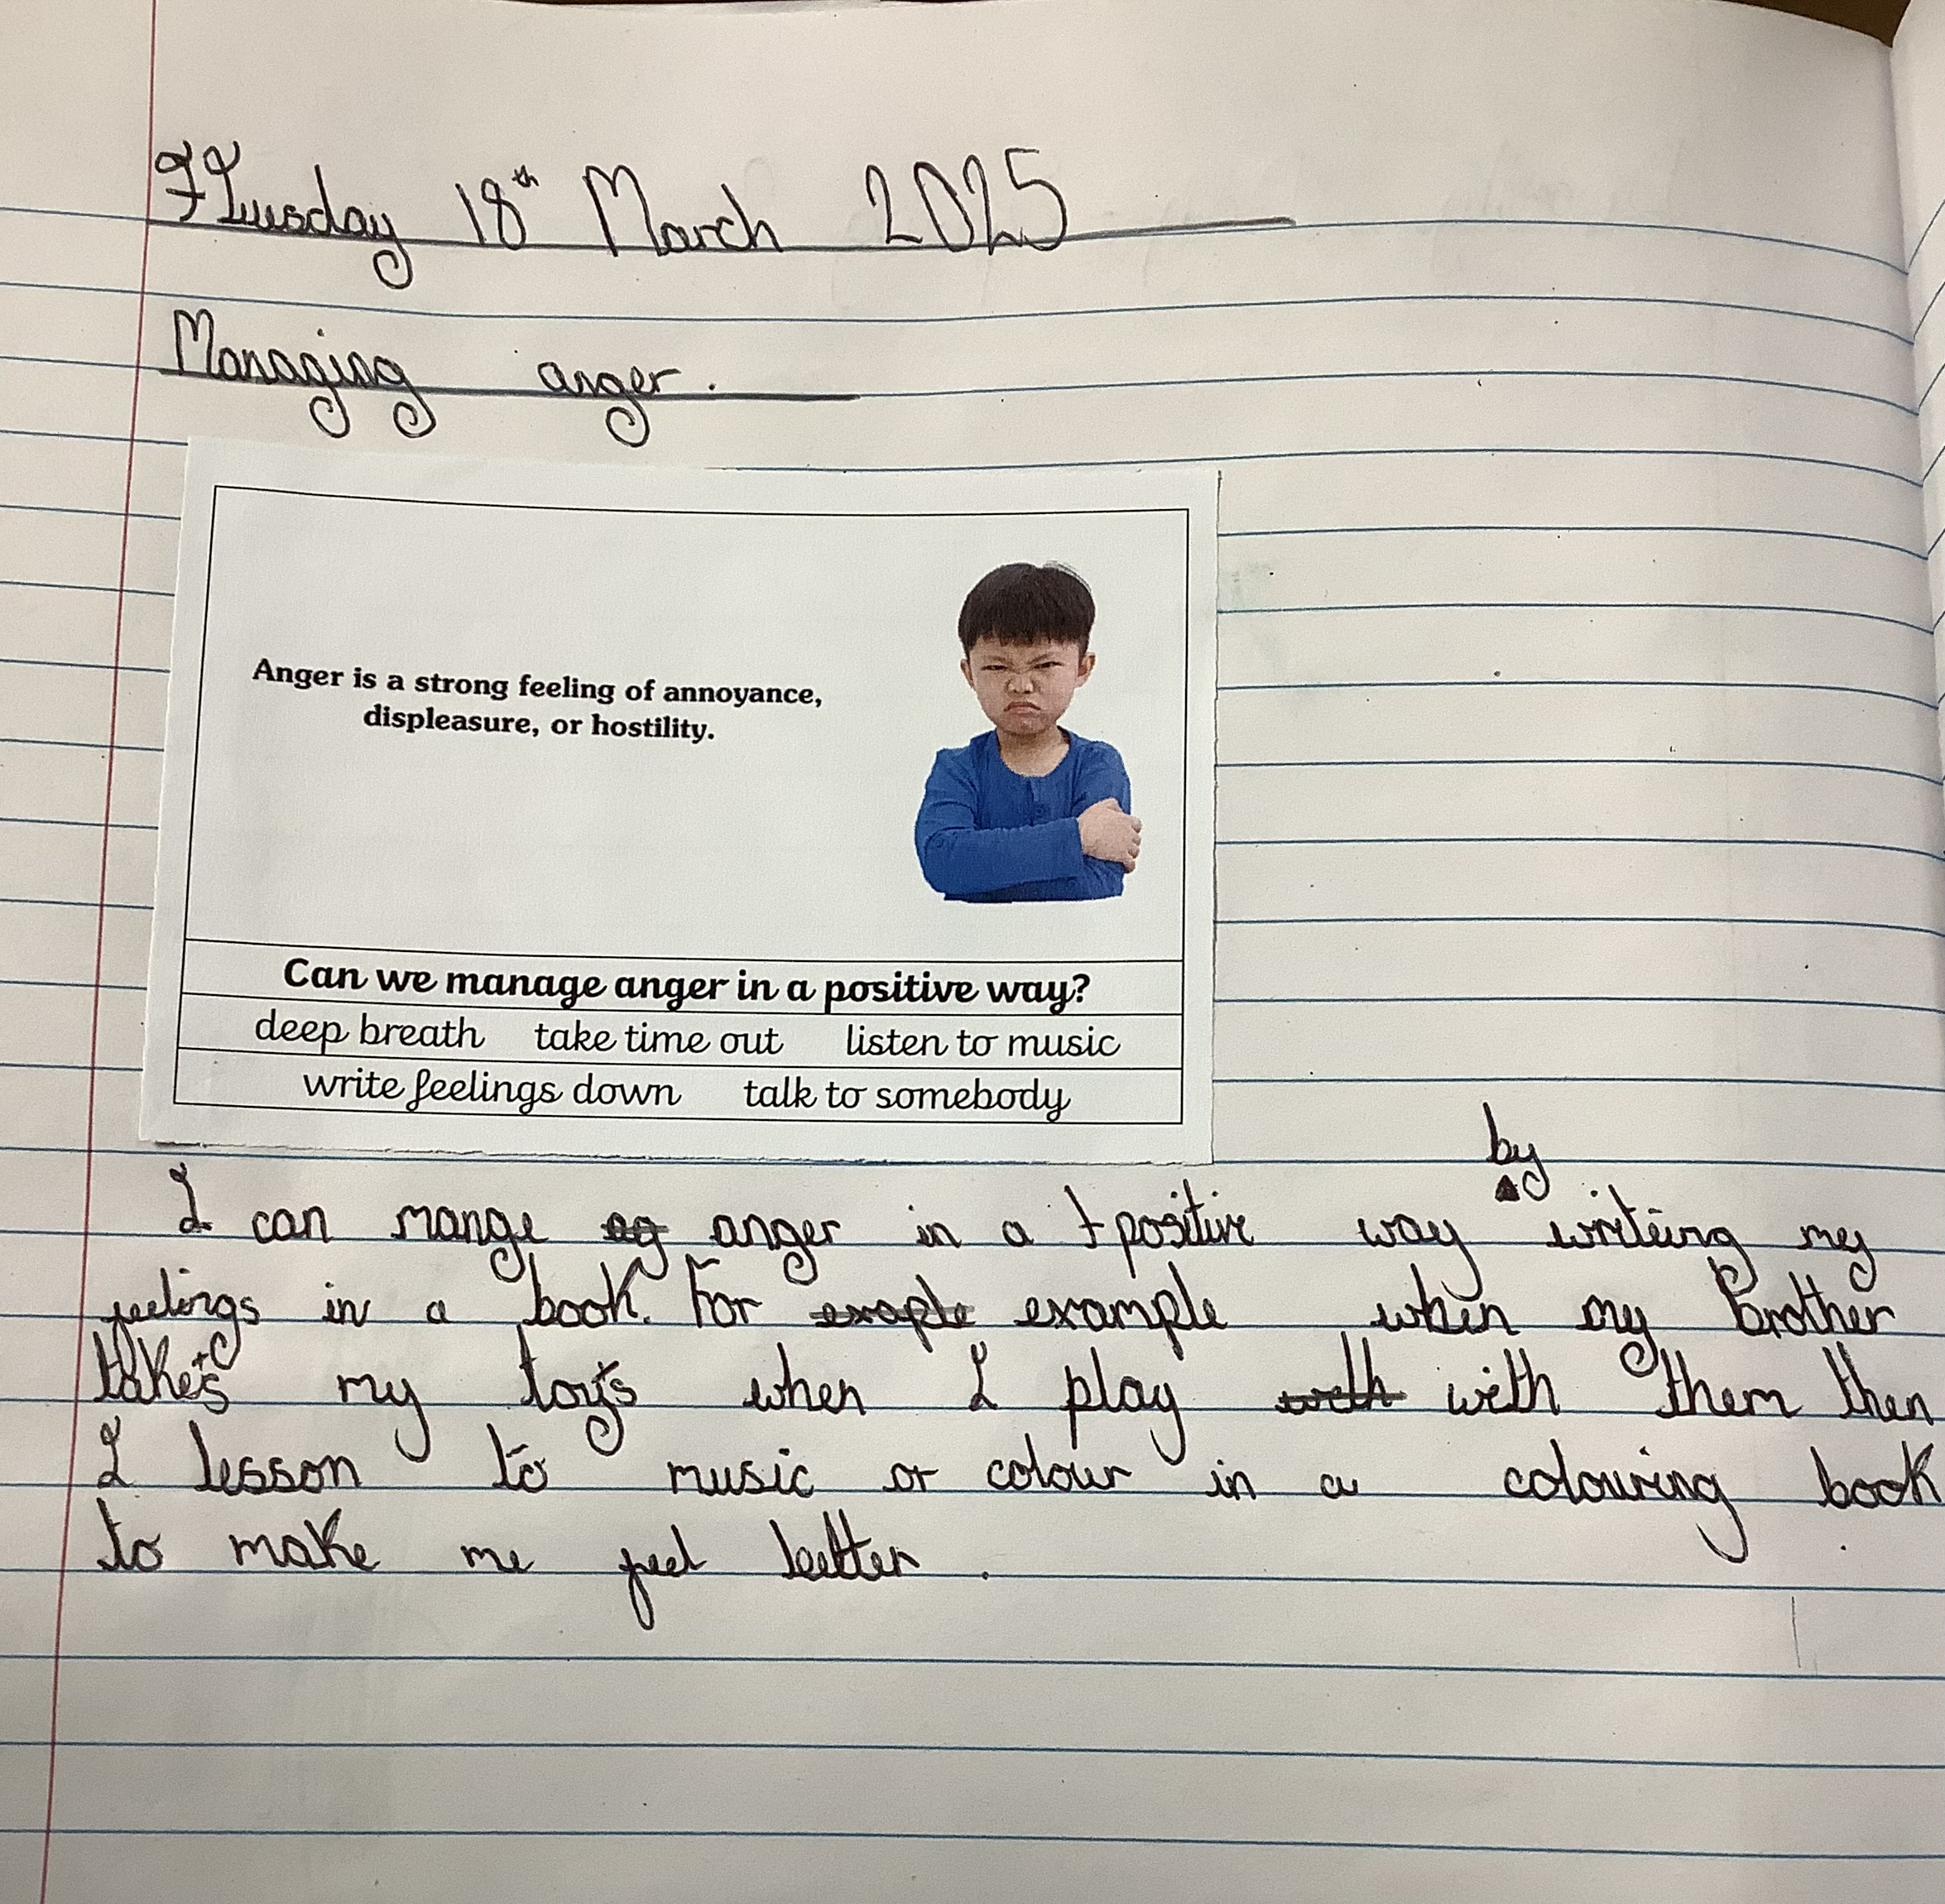 Tuesday 18th March 2025
Managing anger.
Anger is a strong feeling of annoyance,
displeasure, or hostility.
Can we manage anger in a positive way?
deep breath take time out listen to music
write feelings down talk to somebody
by
I can mange anger in a positive way writeing my
feelings in a book. For example when my Brother
takes my toys when I play with them then
I lesson to music or colour in a colouring book
to make me feel better.